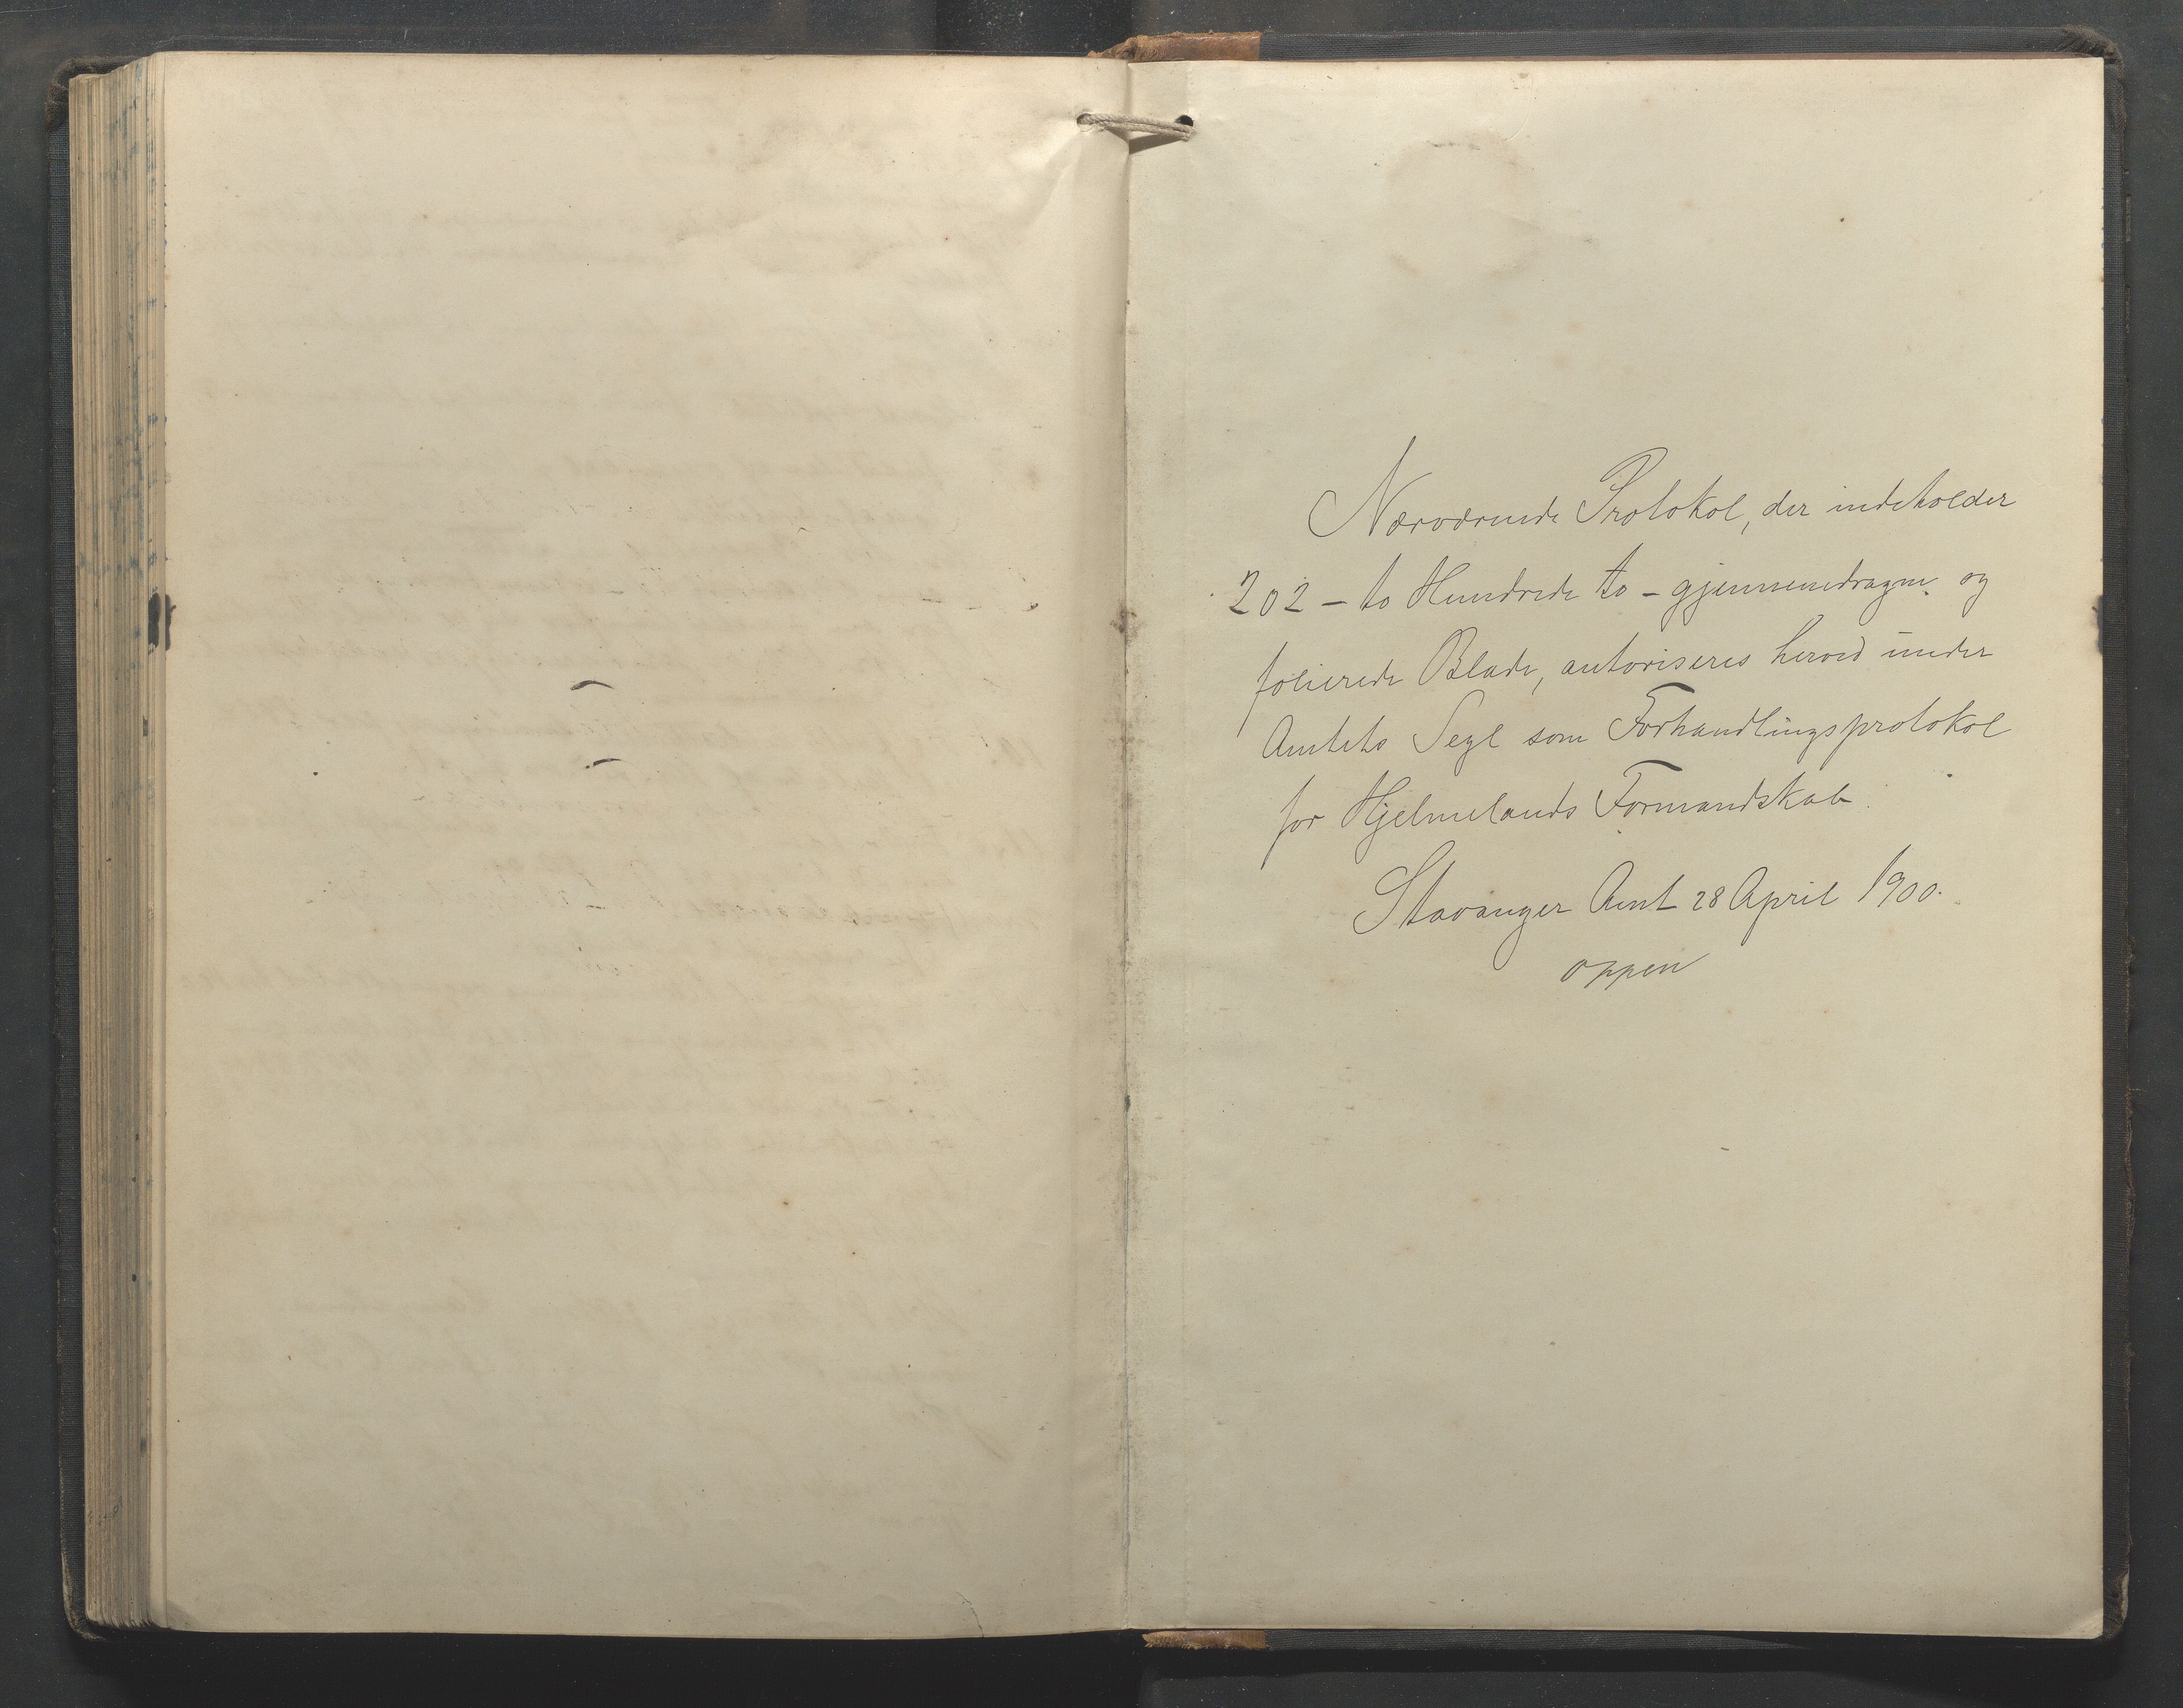 Nærværende Protokol, der indeholder
202 – to Hundrede to – gjennemdragne og
folierede Blade, autoriseres herved under
Amtets Segl som Forhandlingsprotokol
for Hjelmelands Formandskab.
Stavanger Amt 28 April 1900.
Oppen